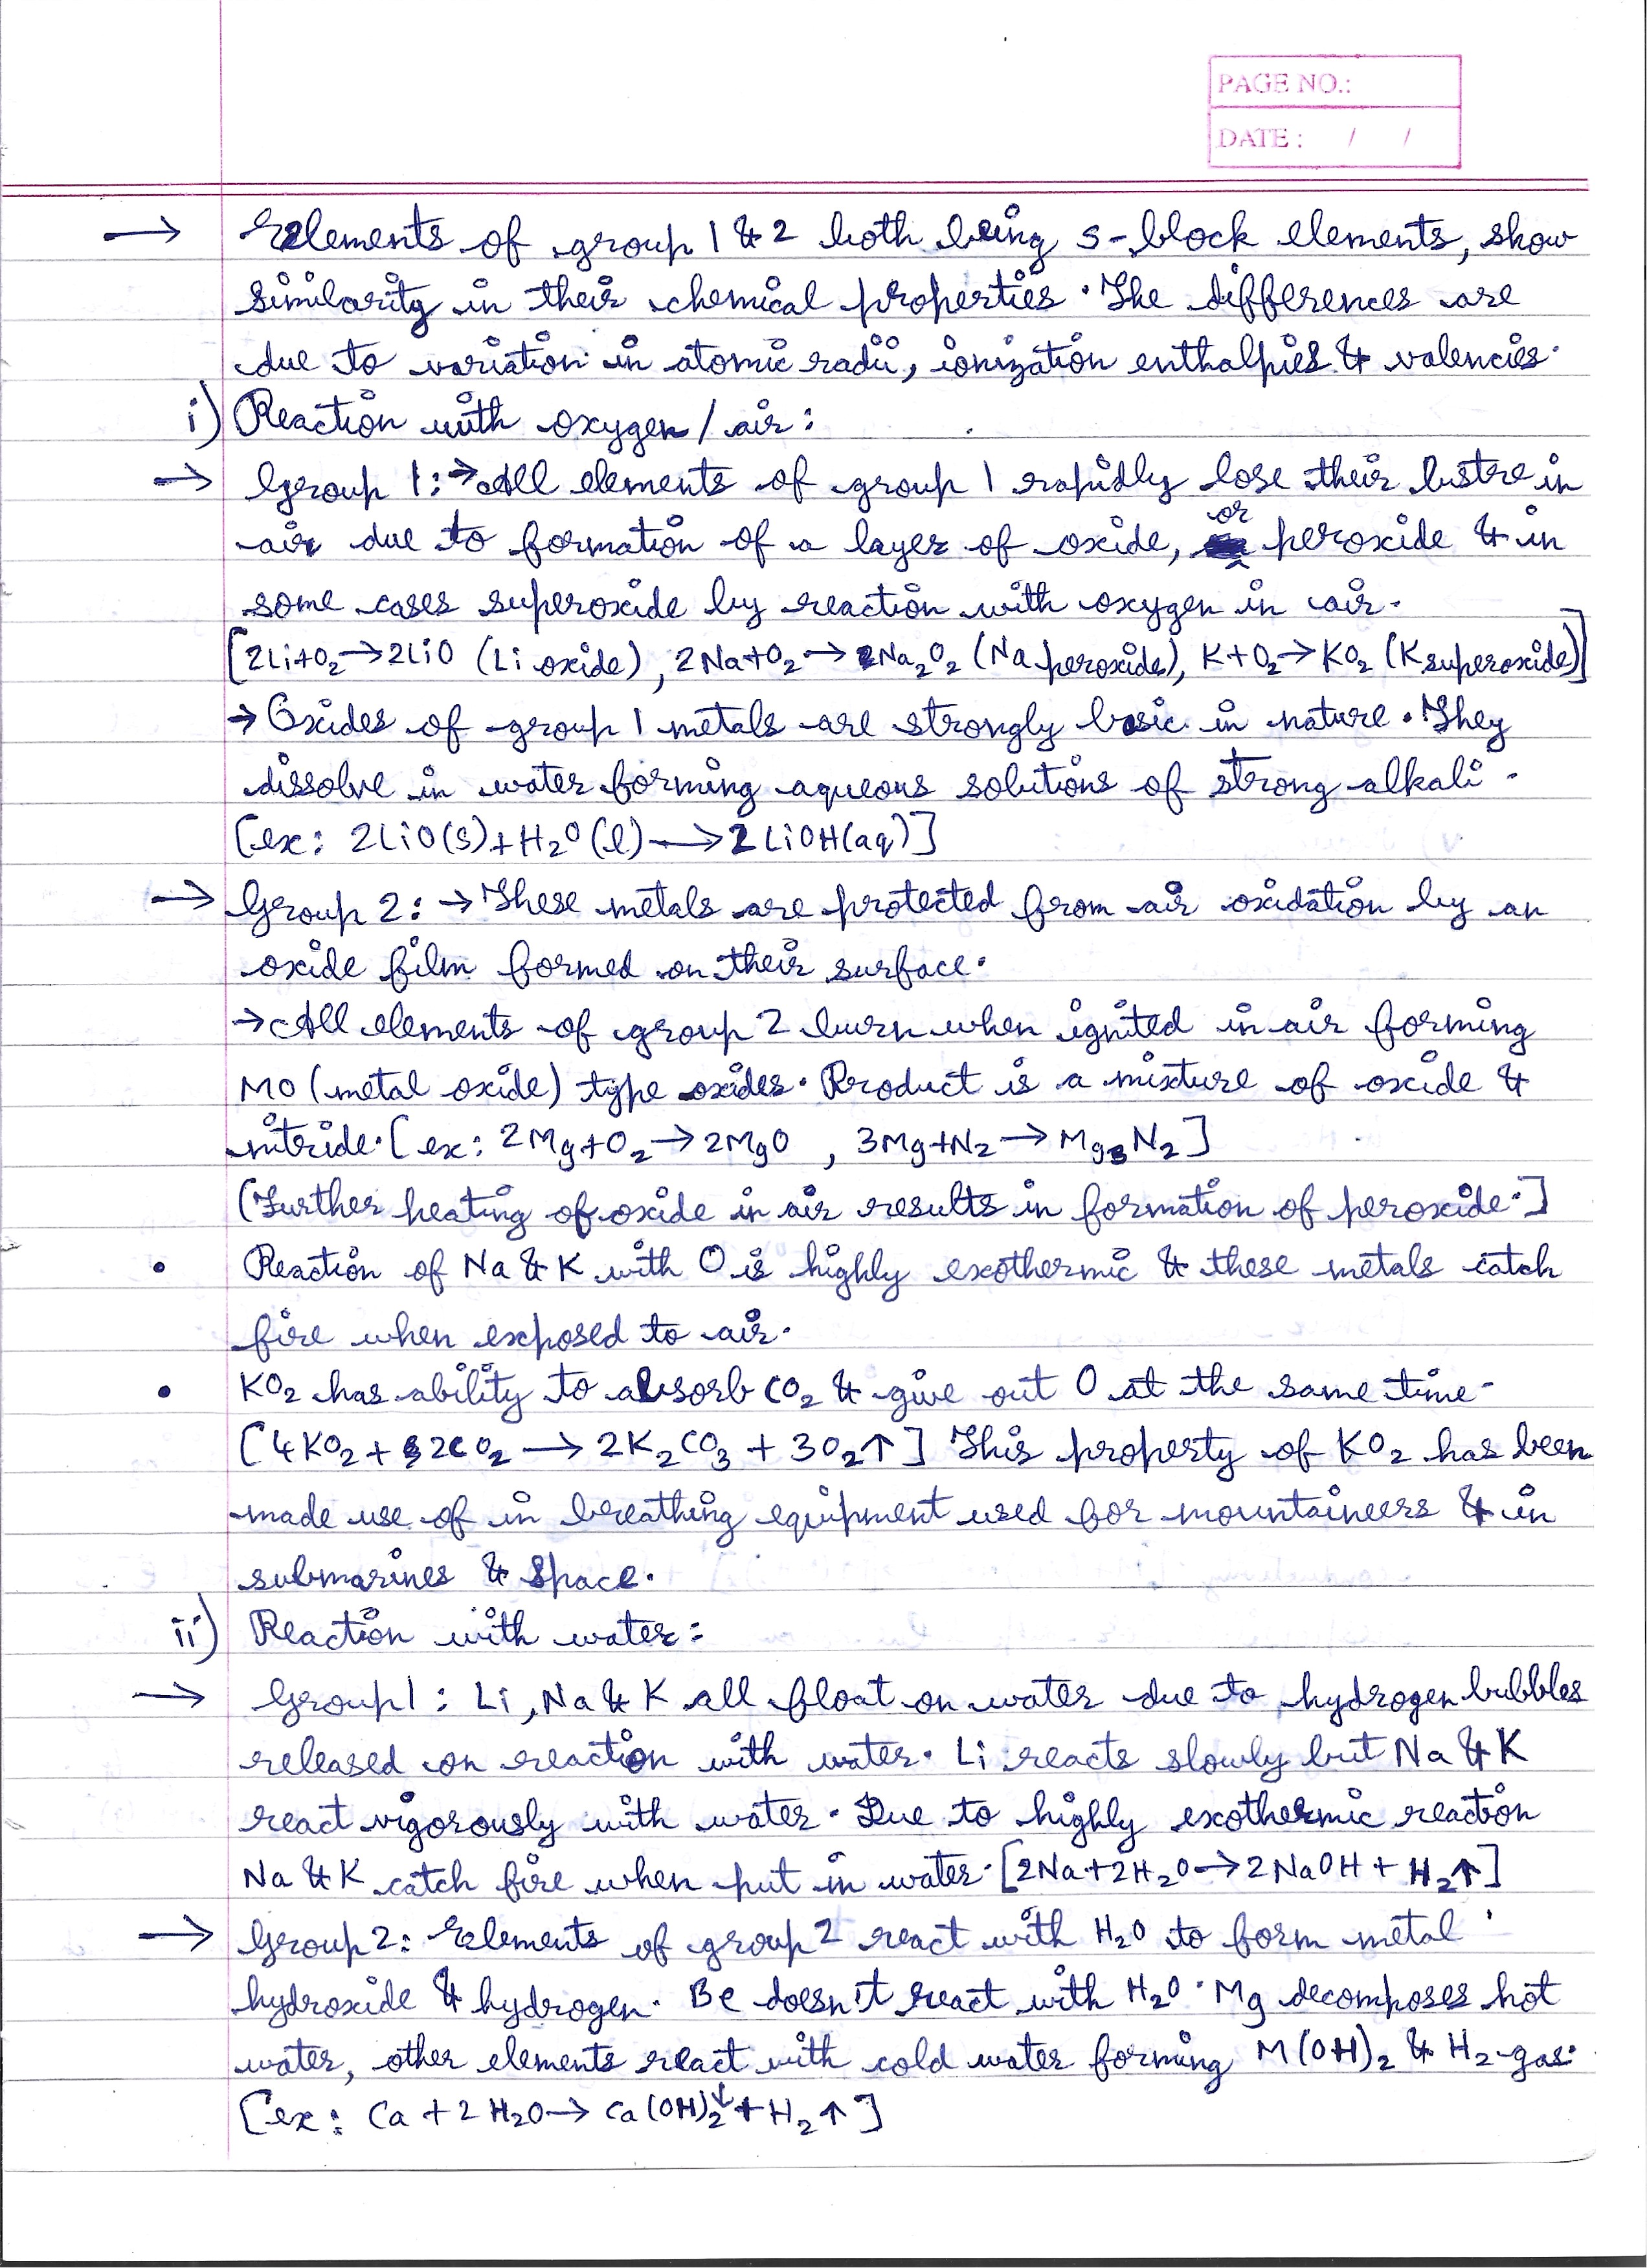 PAGE NO.:
DATE : / /
→ Elements of group 1 & 2 both being s-block elements, show
similarity in their chemical properties. The differences are
due to variation in atomic radii, ionization enthalpies & valencies.
i) Reaction with oxygen / air :
→ Group 1: → All elements of group 1 rapidly lose their lustre in
air due to formation of a layer of oxide, or peroxide & in
some cases superoxide by reaction with oxygen in air.
[2Li+O₂→2LiO (Li oxide), 2Na+O₂→Na₂O₂ (Na peroxide), K+O₂→KO₂ (K superoxide)]
→ Oxides of group 1 metals are strongly basic in nature. They
dissolve in water forming aqueous solutions of strong alkali.
[ex: 2LiO(s)+H₂O(l)→2LiOH(aq)]
→ Group 2: → These metals are protected from air oxidation by an
oxide film formed on their surface.
→ All elements of group 2 burn when ignited in air forming
MO (metal oxide) type oxides. Product is a mixture of oxide &
nitride. [ex: 2Mg+O₂→2MgO , 3Mg+N₂→Mg₃N₂]
(Further heating of oxide in air results in formation of peroxide.]
• Reaction of Na & K with O is highly exothermic & these metals catch
fire when exposed to air.
• KO₂ has ability to absorb CO₂ & give out O at the same time.
[4KO₂ + 2CO₂ → 2K₂CO₃ + 3O₂↑] This property of KO₂ has been
made use of in breathing equipment used for mountaineers & in
submarines & space.
ii) Reaction with water :
→ Group 1 : Li, Na & K all float on water due to hydrogen bubbles
released on reaction with water. Li reacts slowly but Na & K
react vigorously with water. Due to highly exothermic reaction
Na & K catch fire when put in water. [2Na+2H₂O→2NaOH + H₂↑]
→ Group 2: Elements of group 2 react with H₂O to form metal
hydroxide & hydrogen. Be doesn't react with H₂O. Mg decomposes hot
water, other elements react with cold water forming M(OH)₂ & H₂-gas.
[ex: Ca + 2H₂O→ Ca(OH)₂↓+H₂↑]